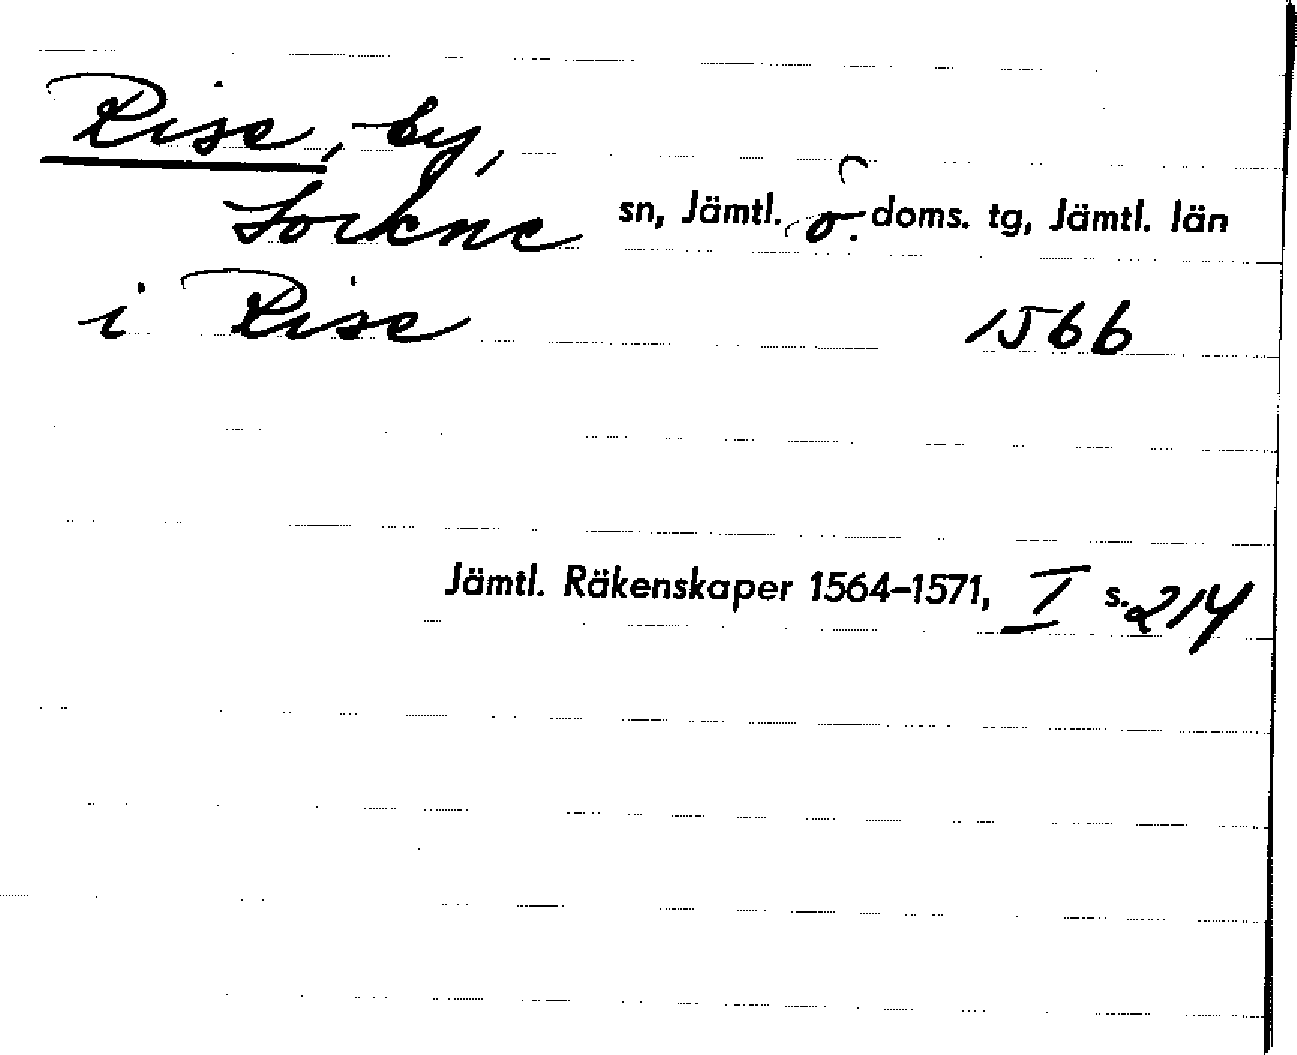 Rise, by,
Lockne sn, Jämtl. ö. doms. tg, Jämtl. län
i Rise 1566
Jämtl. Räkenskaper 1564–1571, I s. 214